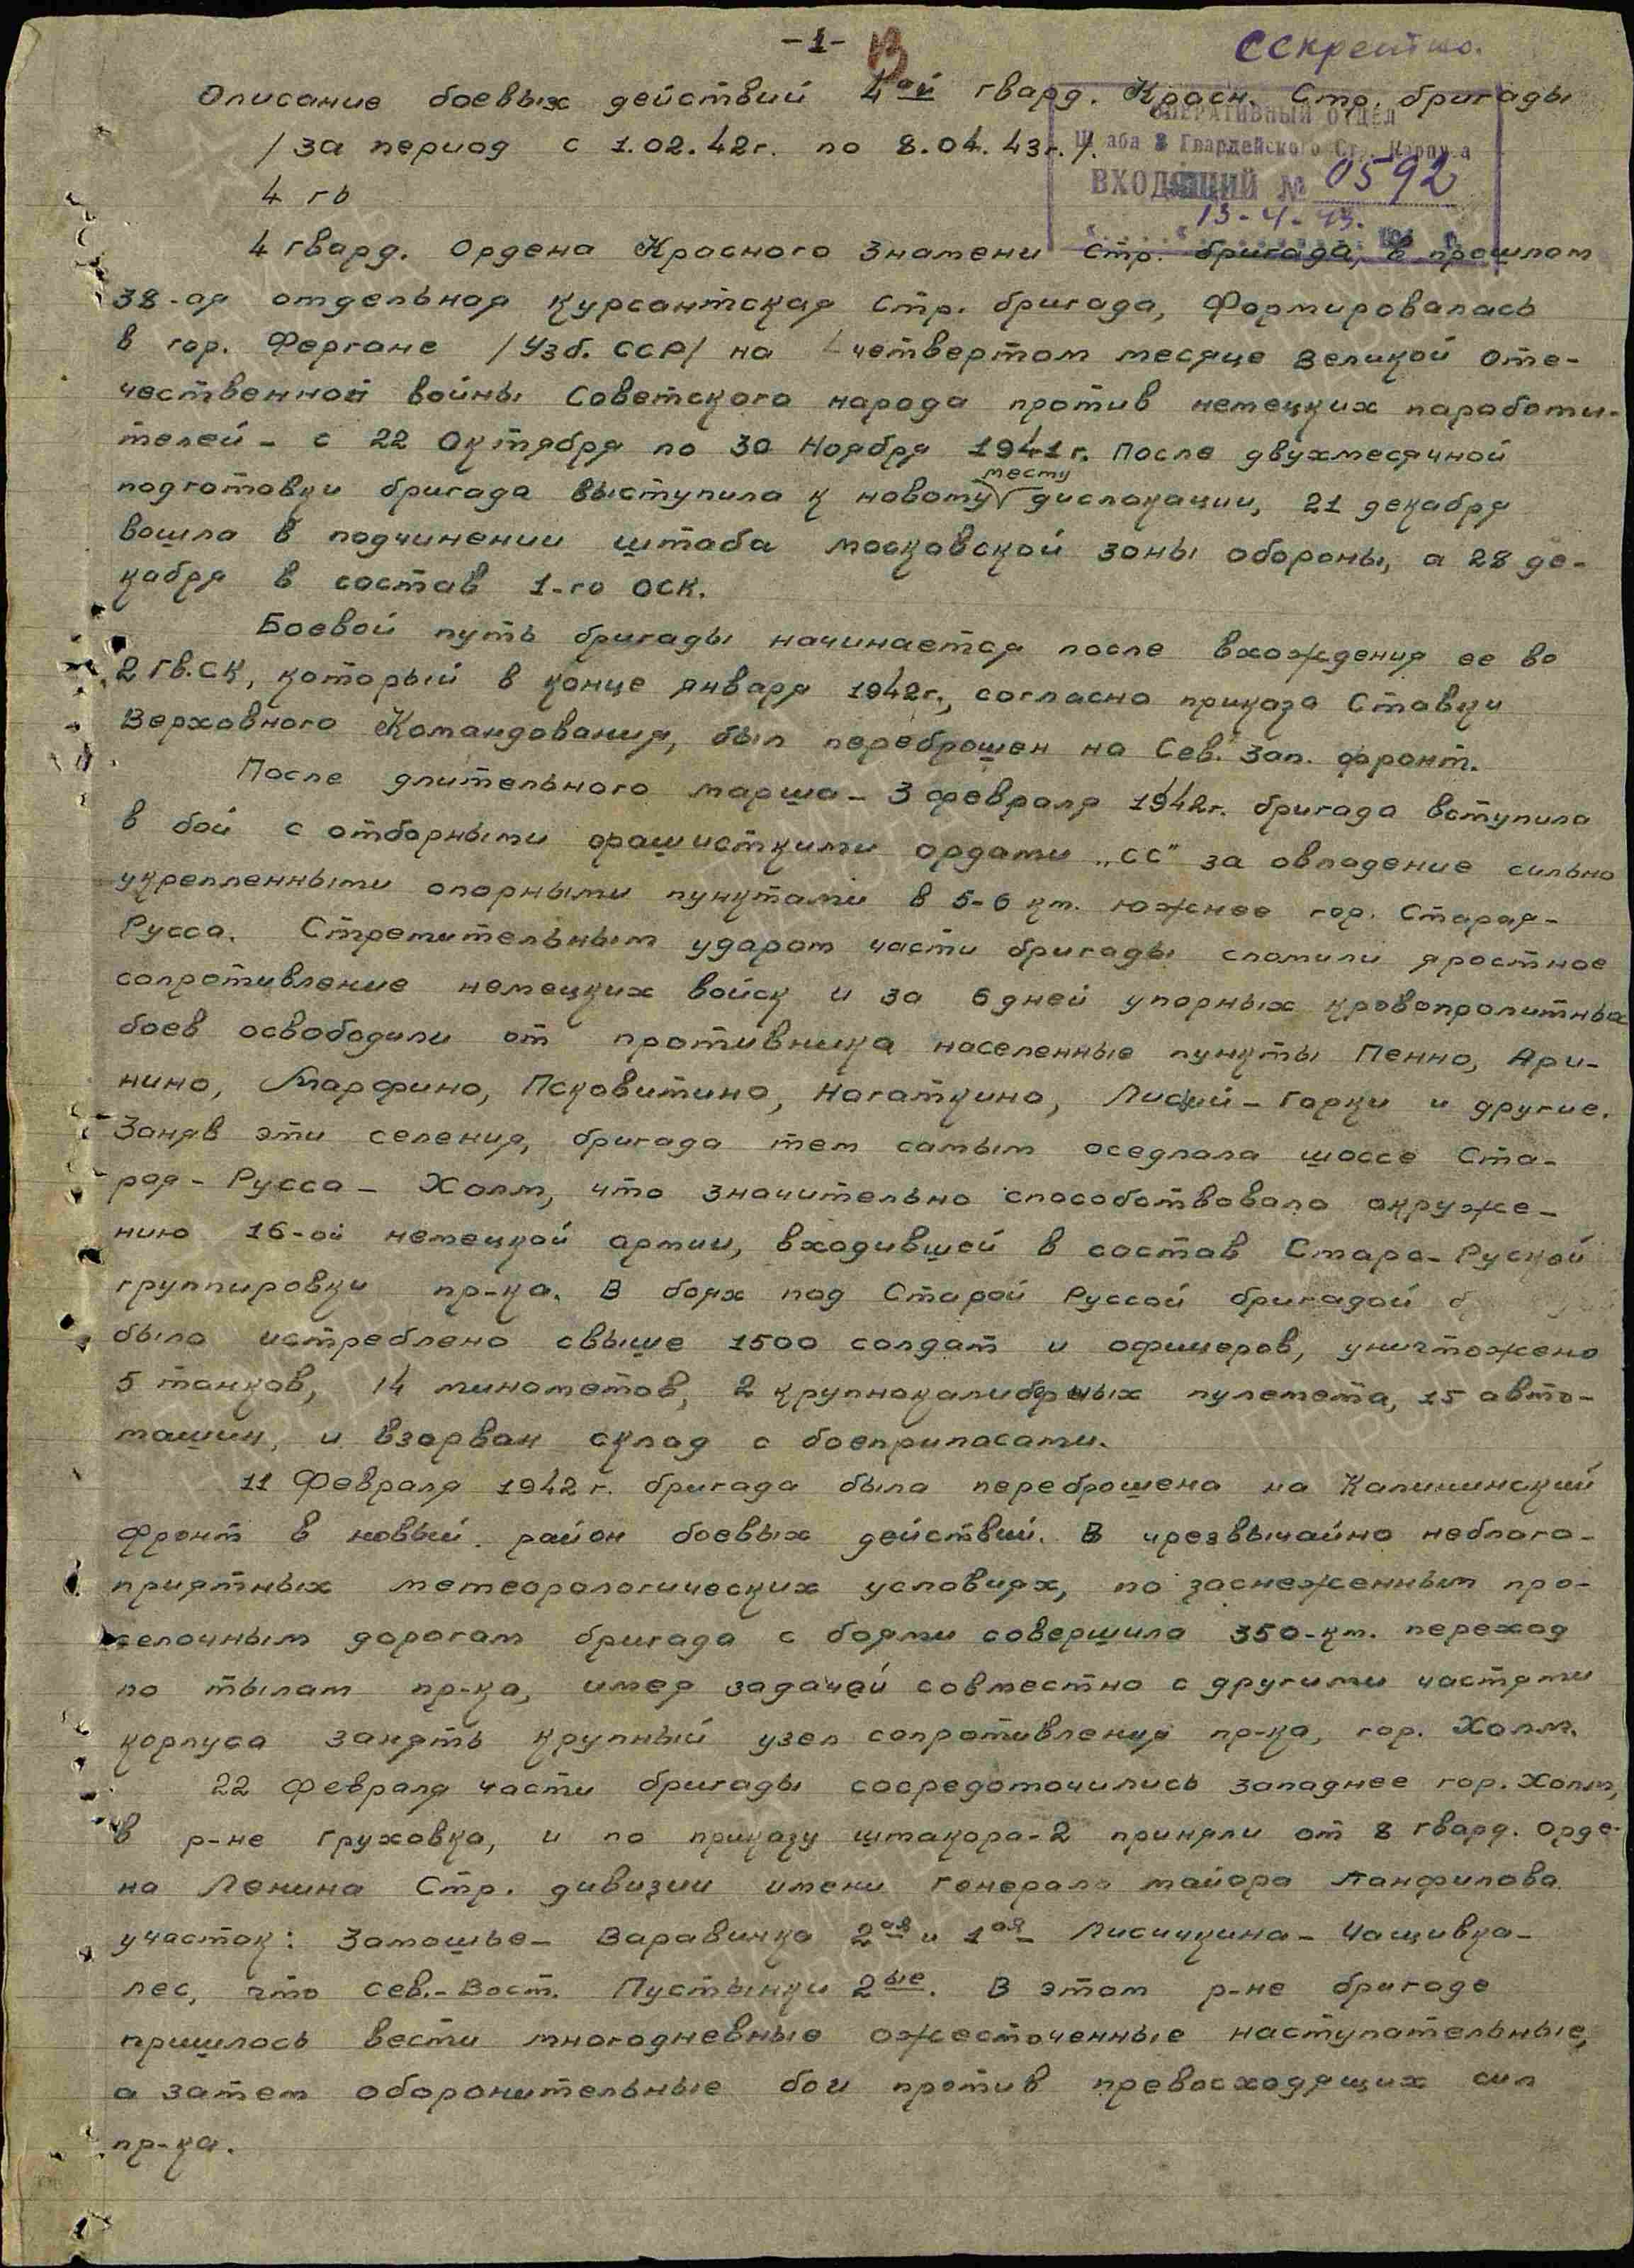 -1-
Секретно.
Описание боевых действий 4ой гвард. Красн. Стр. бригады
/за период с 1.02.42г. по 8.04.43г./.
ОПЕРАТИВНЫЙ ОТДЕЛ
Штаба 8 Гвардейского Ст. Корпуса
ВХОДЯЩИЙ № 0592
13-4-43.
4 гв
4 гвард. Ордена Красного Знамени Стр. бригада, в прошлом
38-ая отдельная курсантская Стр. бригада, Формировалась
в гор. Фергане /Узб. ССР/ на четвертом месяце Великой Оте-
чественной войны Советского народа против немецких паработи-
телей - с 22 Октября по 30 Ноября 1941г. После двухмесячной
подготовки бригада выступила к новому месту дислокации, 21 декабря
вошла в подчинении штаба московской зоны обороны, а 28 де-
кабря в состав 1-го ОСК.
Боевой путь бригады начинается после вхождения ее во
2 ГВ.СК, который в конце января 1942г., согласно приказа Ставки
Верховного Командования, был переброшен на Сев. Зап. фронт.
После длительного марша - 3 февраля 1942г. бригада вступила
в бой с отборными фашисткими ордами „СС" за овладение сильно
укрепленными опорными пунктами в 5-6 км. южнее гор. Старая-
Русса. Стремительным ударом части бригады сломили яростное
сопротивление немецких войск и за 6 дней упорных кровопролитных
боев освободили от противника населенные пункты Пенно, Ари-
нино, Марфино, Псковитино, Нагаткино, Лисьи-Горки и другие.
Заняв эти селения, бригада тем самым оседлала шоссе Ста-
рая-Русса-Холм, что значительно способствовало окруже-
нию 16-ой немецкой армии, входившей в состав Старо-Руской
группировки пр-ка. В боях под Старой Руссой бригадой б
было истреблено свыше 1500 солдат и офицеров, уничтожено
5 танков, 14 минометов, 2 крупнокалиберных пулемета, 15 авто-
машин, и взорван склад с боеприпасами.
11 Февраля 1942г. бригада была переброшена на Калининский
фронт в новый район боевых действий. В чрезвычайно неблаго-
приятных метеорологических условиях, по заснеженным про-
селочным дорогам бригада с боями совершила 350-км. переход
по тылам пр-ка, имея задачей совместно с другими частями
корпуса занять крупный узел сопротивления пр-ка, гор. Холм.
22 Февраля части бригады сосредоточились западнее гор. Холм,
в р-не Груховка, и по приказу штакора-2 приняли от 8 гвард. Орде-
на Ленина Стр. дивизии имени Генерала майора Панфилова
участок: Замошье - Таравинка 2ая и 1ая - Лисичкина - Чащивка -
лес, что Сев.-Вост. Пустынки 2ые. В этом р-не бригаде
пришлось вести многодневные ожесточенные наступательные,
а затем оборонительные бои против превосходящих сил
пр-ка.